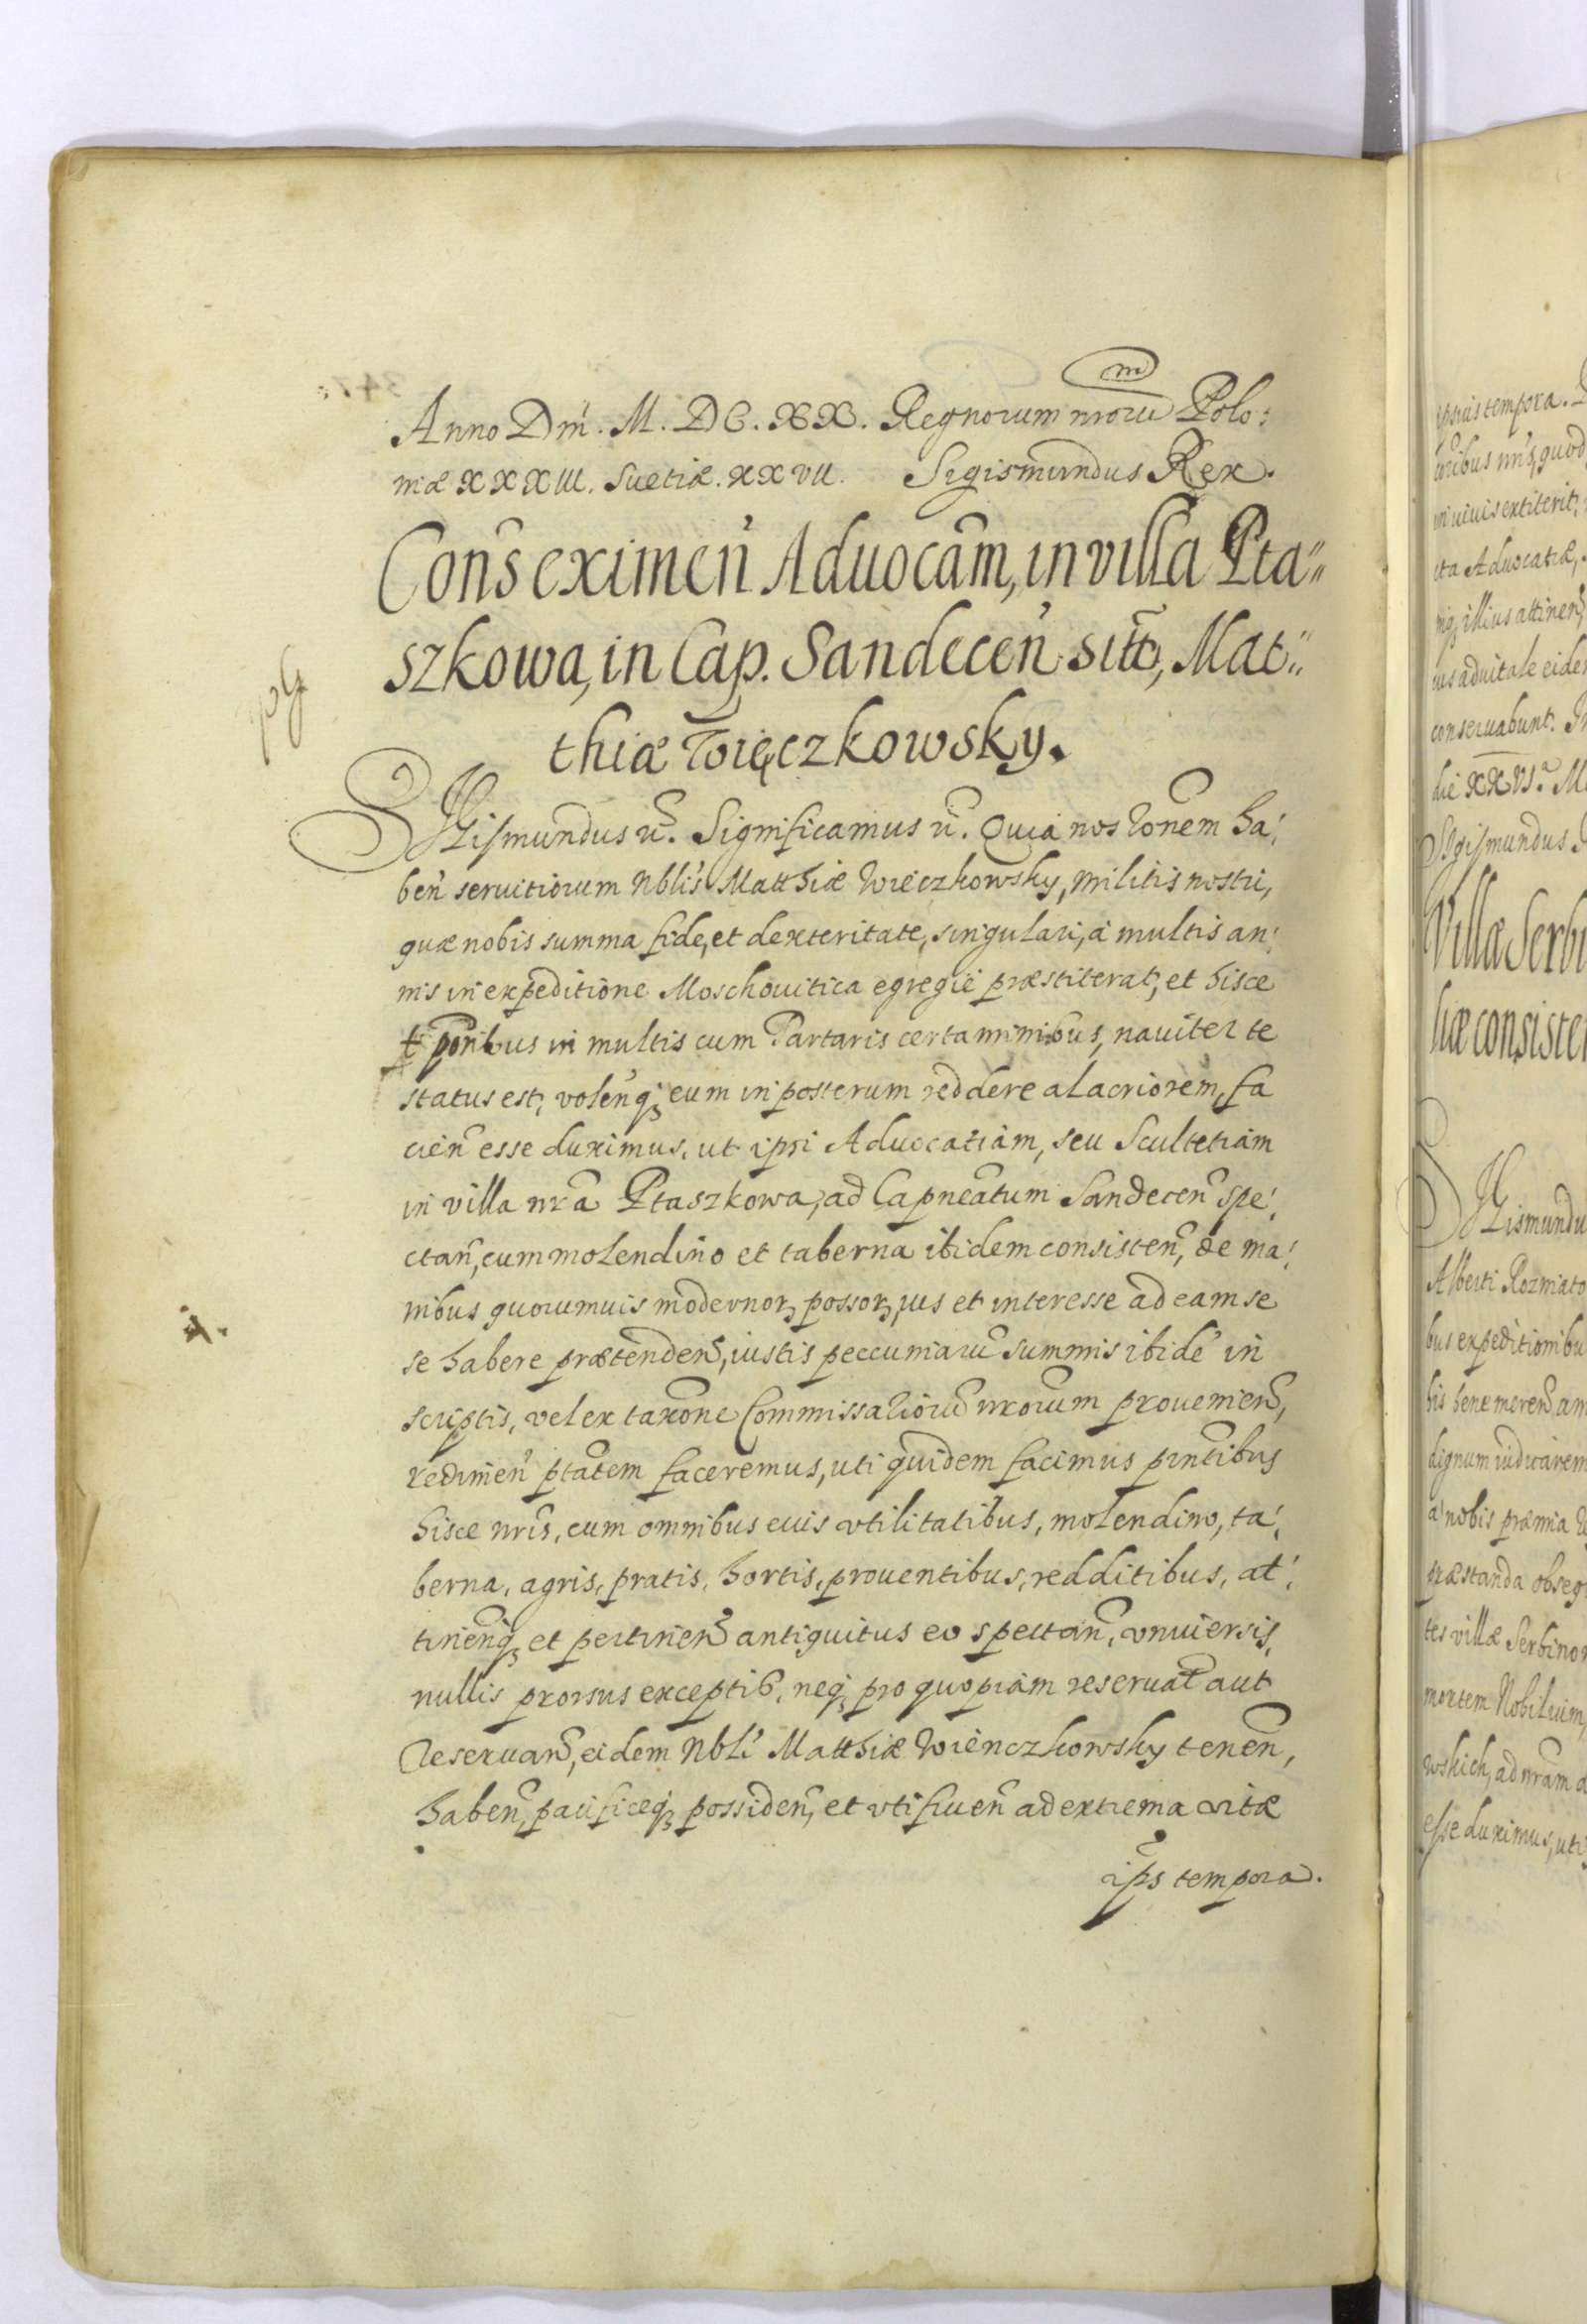 Anno Dm̃. M. DC. XX. Regnorum nrorũ Polo:
niæ XXXIII. Suetiæ. XXVII. Sigismundus Rex.
Cons̃ eximeñ Aduocãm, in villa Pta„
szkowa, in Cap. Sandeceñ sitã, Mat„
thiæ Więczkowsky.
pg
SIgismundus &c̃. Significamus &c̃. Quia nos rõnem ha:
beñ seruitiorum Nblis Matthiæ Więczkowsky, militis nostri,
quæ nobis summa fide, et dexteritate, singulari, à multis an:
nis in expeditione Moschouitica egregiè præstiterat, et hisce
tp̃oribus in multis cum Tartaris certaminibus, nauiter te
status est, voleñq; eum in posterum reddere alacriorem, fa
cieñ esse duximus, ut ipsi Aduocatiam, seu Scultetiam
in villa nrã Ptaszkowa, ad Capneãtum Sandeceñ spe:
ctañ, cum molendino et taberna ibidem consisteñ, de ma:
nibus quorumuis modernor; possor; ius et interesse ad eam se
se habere prætendeñ, iustis peccuniarũ summis ibidẽ in
scriptis, vel ex taxõne Commissariorũ nrorum prouenieñ,
redimeñ ptãtem faceremus, uti quidem facimus pñtibus
hisce nris̃, cum omnibus euis vtilitatibus, molendino, ta:
berna, agris, pratis, hortis, prouentibus, redditibus, at:
tineñq; et pertineñ antiquitus eo spectañ, vniuersis,
nullis prorsus exceptis, neq; pro quopiam reseruat̃ aut
reseruañ, eidem Nbli Matthiæ Wienczkowsky teneñ,
habeñ, pacificeq; possideñ, et vtifrueñ ad extrema vitæ
ips̃ tempora.
ipsius tempora.
conseruabunt.
die XXVI.ª
Sigismundus
Villæ Serbi
liæ consiste
SIgismundu
Alberti Rozmiato
bus expeditionibu
bis bene mereñ am
dignum iudicarem
à nobis præmia
præstanda obseq
tes villæ Serbino
mortem Nobilium
wskich, ad nrãm
esse duximus, uti